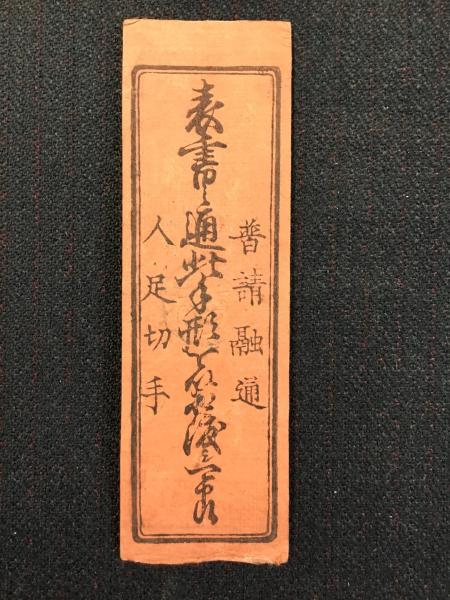 普請融通
表書之通此手形を以相渡可申候
人足切手